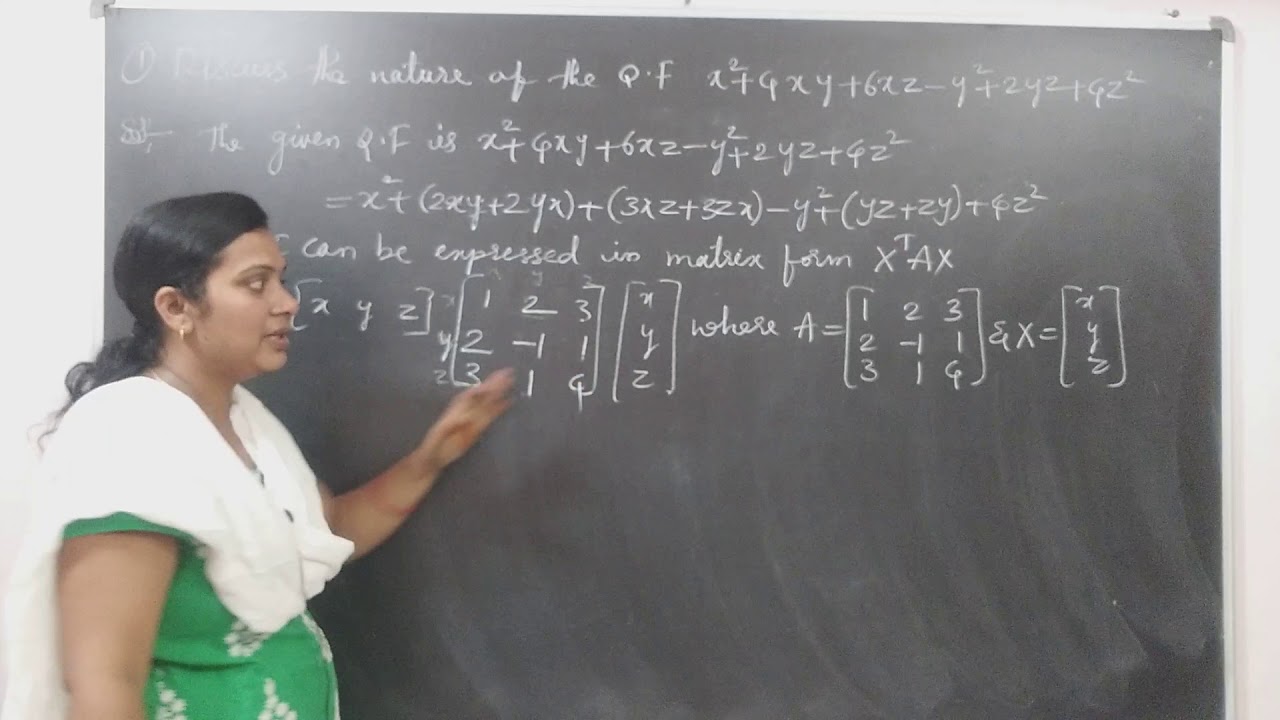 ① Discuss the nature of the Q.F x²+4xy+6xz-y²+2yz+4z²
Sol:- The given Q.F is x²+4xy+6xz-y²+2yz+4z²
= x²+(2xy+2yx)+(3xz+3zx)-y²+(yz+zy)+4z²
can be expressed in matrix form XᵀAX
x y z
[x y z] [1 2 3 [x where A = [1 2 3 & X = [x
x y z 2 -1 1 y 2 -1 1 y
3 1 4] z] 3 1 4] z]